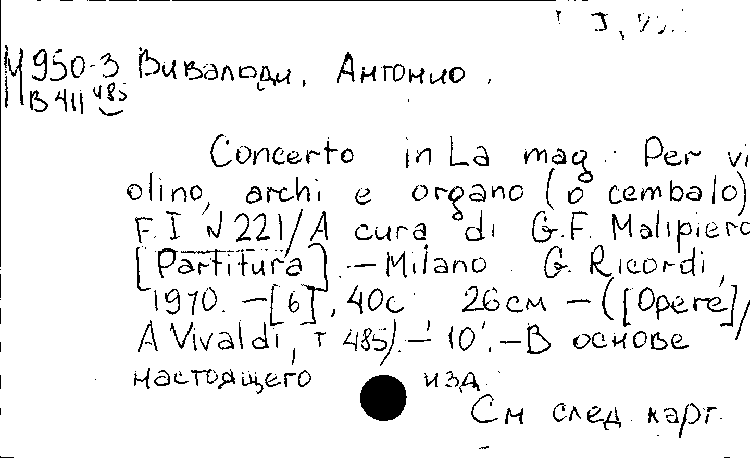 М950-3 Вивальди, Антонио.
В 411 485
Concerto in La mag. Per vi
olino, archi e organo (o cembalo)
F. I N 221/A cura di G.F. Malipiero
[Partitura]. — Milano G. Ricordi,
1970. — [6], 40с 26 см — ([Opere]/
A Vivaldi, т 485). — 10'. — В основе
настоящего изд
См след карт.